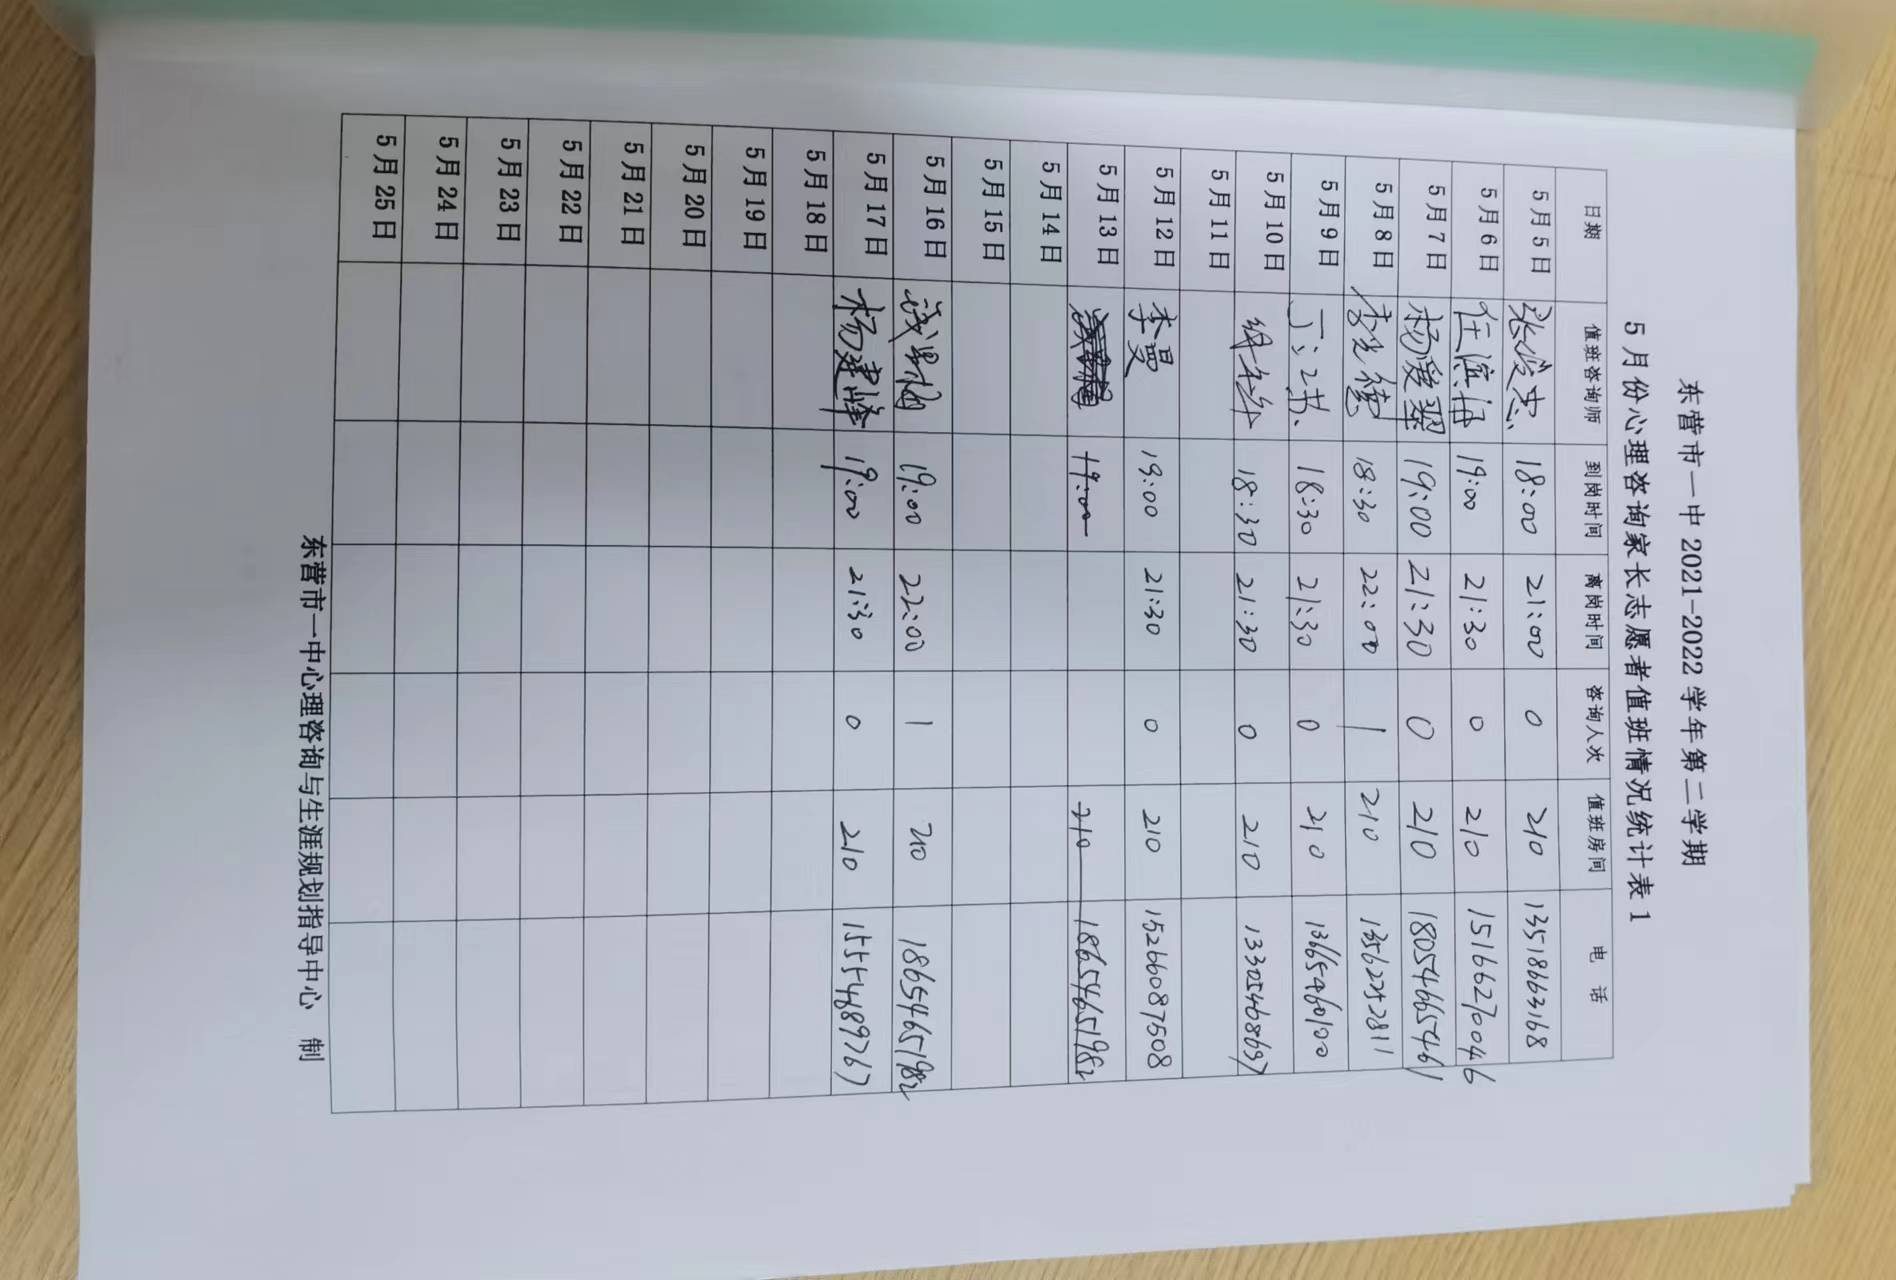 东营市一中 2021-2022 学年第二学期
5 月份心理咨询家长志愿者值班情况统计表 1
日期 值班咨询师 到岗时间 离岗时间 咨询人次 值班房间 电 话
5 月 5 日 张俊忠 18:00 21:00 0 210 13518663168
5 月 6 日 任滨海 19:00 21:30 0 210 15166270046
5 月 7 日 杨爱翠 19:00 21:30 0 210 18054665461
5 月 8 日 李光德 18:30 22:00 1 210 13562252811
5 月 9 日 18:30 21:30 0 210 13665460100
5 月 10 日 18:30 21:30 0 210 13305468697
5 月 11 日
5 月 12 日 李曼 19:00 21:30 0 210 15266087508
5 月 13 日 19:00 210 18654651982
5 月 14 日
5 月 15 日
5 月 16 日 19:00 22:00 1 210 18654651982
5 月 17 日 杨建峰 19:00 21:30 0 210 15554689767
5 月 18 日
5 月 19 日
5 月 20 日
5 月 21 日
5 月 22 日
5 月 23 日
5 月 24 日
5 月 25 日
东营市一中心理咨询与生涯规划指导中心 制